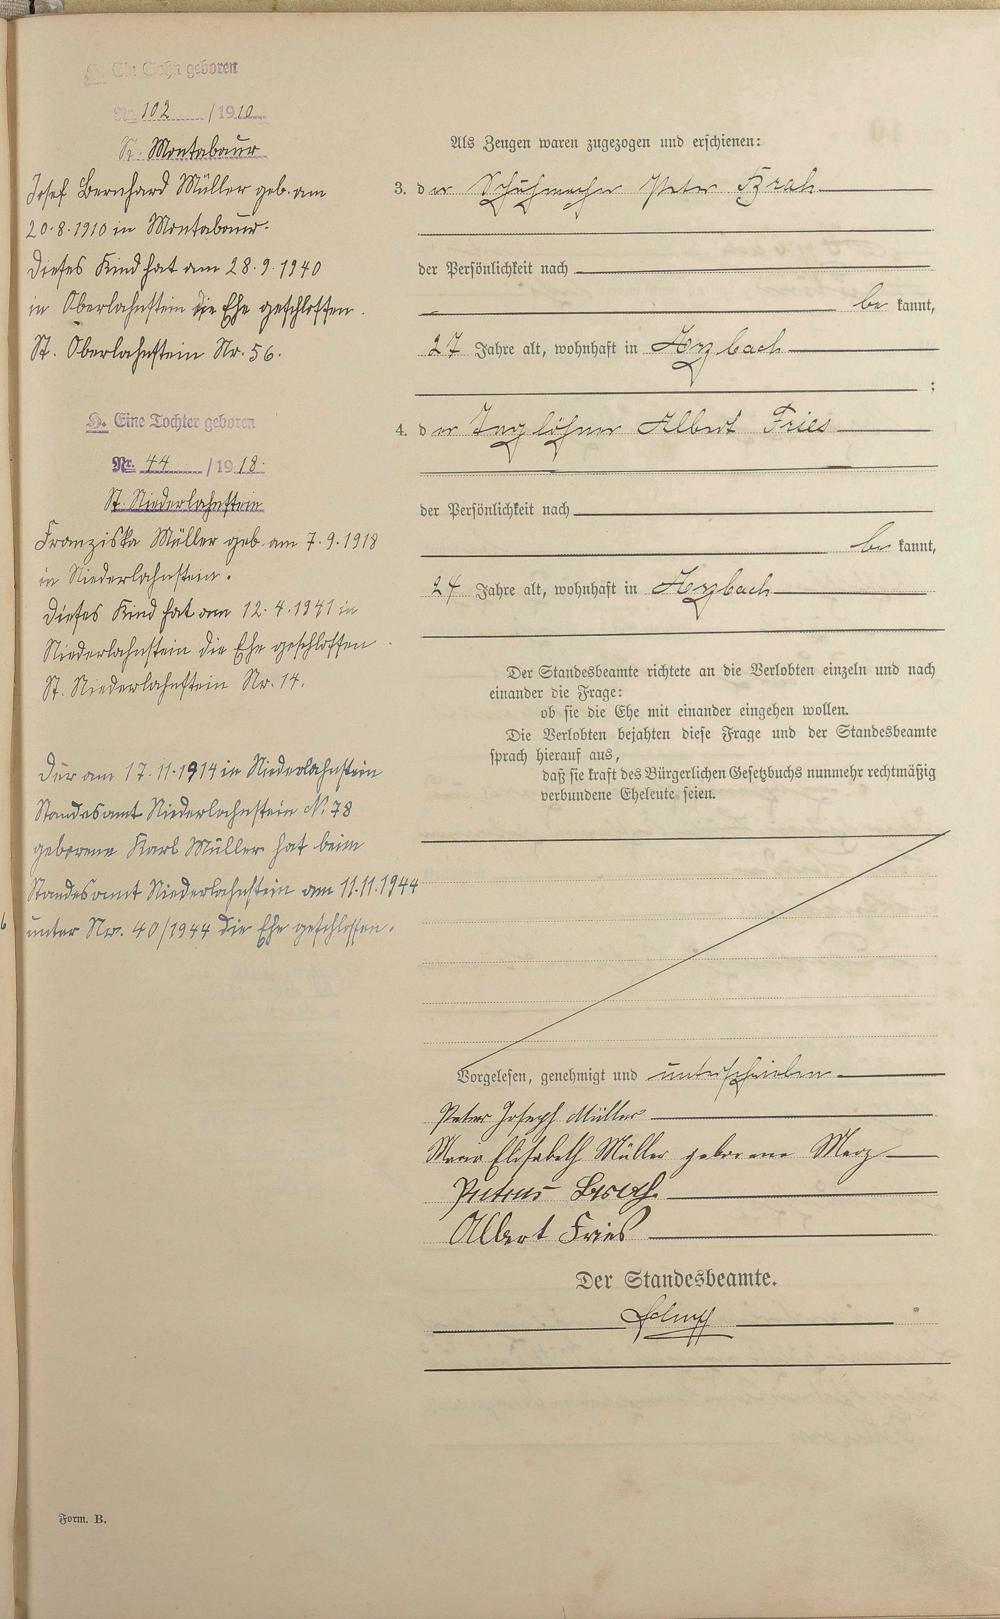 H. Ein Sohn geboren
Nr. 102 / 1910
St. Montabaur
Josef Bernhard Müller geb. am
20.8.1910 in Montabaur.
Dieses Kind hat am 28.9.1940
in Oberlahnstein die Ehe geschlossen.
St. Oberlahnstein Nr. 56.
H. Eine Tochter geboren
Nr. 44 / 1918.
St. Niederlahnstein
Franziska Müller geb. am 7.9.1918
in Niederlahnstein.
Dieses Kind hat am 12.4.1941 in
Niederlahnstein die Ehe geschlossen.
St. Niederlahnstein Nr. 14.
Der am 17.11.1914 in Niederlahnstein
Standesamt Niederlahnstein N: 78
geborene Karl Müller hat beim
Standesamt Niederlahnstein am 11.11.1944
unter Nr. 40/1944 die Ehe geschlossen.
Form. B.
Als Zeugen waren zugezogen und erschienen:
3. der Schuhmacher Peter
der Persönlichkeit nach
bekannt,
27 Jahre alt, wohnhaft in Arzbach
;
4. der Taglöhner Albert Fries
der Persönlichkeit nach
bekannt,
24 Jahre alt, wohnhaft in Arzbach
Der Standesbeamte richtete an die Verlobten einzeln und nach
einander die Frage:
ob sie die Ehe mit einander eingehen wollen.
Die Verlobten bejahten diese Frage und der Standesbeamte
sprach hierauf aus,
daß sie kraft des Bürgerlichen Gesetzbuchs nunmehr rechtmäßig
verbundene Eheleute seien.
Vorgelesen, genehmigt und unterschrieben
Peter Joseph Müller
Maria Elisabeth Müller geborene Merz
Petrus
Albert Fries
Der Standesbeamte.